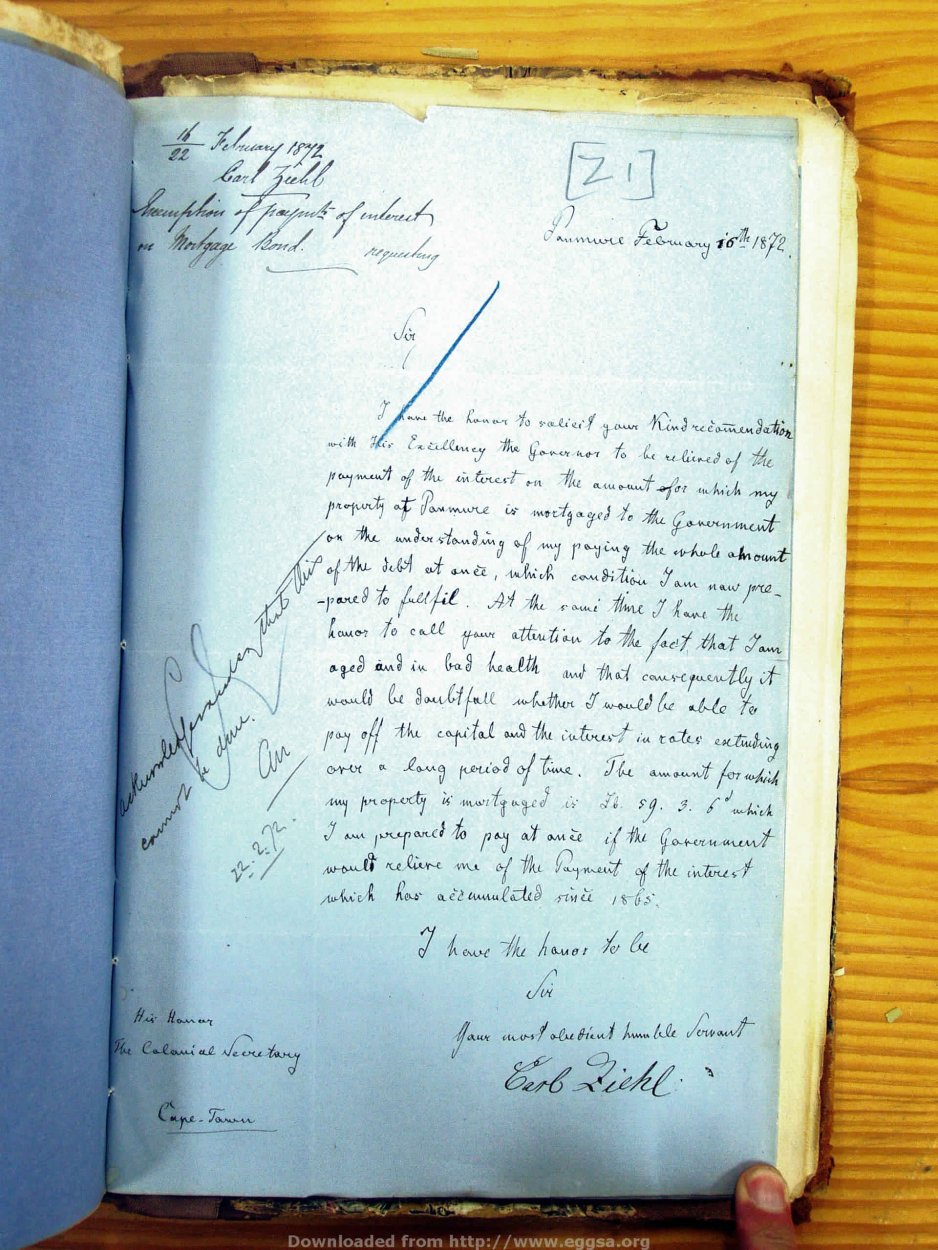 16/22 February 1872
Carl Ziehl
Exemption of paymts of interest
on Mortgage Bond. requesting
[21]
Panmure February 16th 1872.
Sir
I have the honor to solicit your Kind recomendation
with His Excellency the Governor to be relieved of the
payment of the interest on the amount for which my
property at Panmure is mortgaged to the Government
on the understanding of my paying the whole amount
of the debt at once, which condition I am now pre-
-pared to fullfil. At the same time I have the
honor to call your attention to the fact that I am
aged and in bad health and that consequently it
would be doubtfull whether I would be able to
pay off the capital and the interest in rates extending
over a long period of time. The amount for which
my property is mortgaged is Lb. 59. 3. 6d which
I am prepared to pay at once if the Government
would relieve me of the Payment of the interest
which has accumulated since 1865.
I have the honor to be
Sir
Your most obedient humble Servant
Carl Ziehl.
His Honor
The Colonial Secretary
Cape-Town
acknowledge that this
cannot be done.
22.2.72.
Downloaded from http://www.eggsa.org